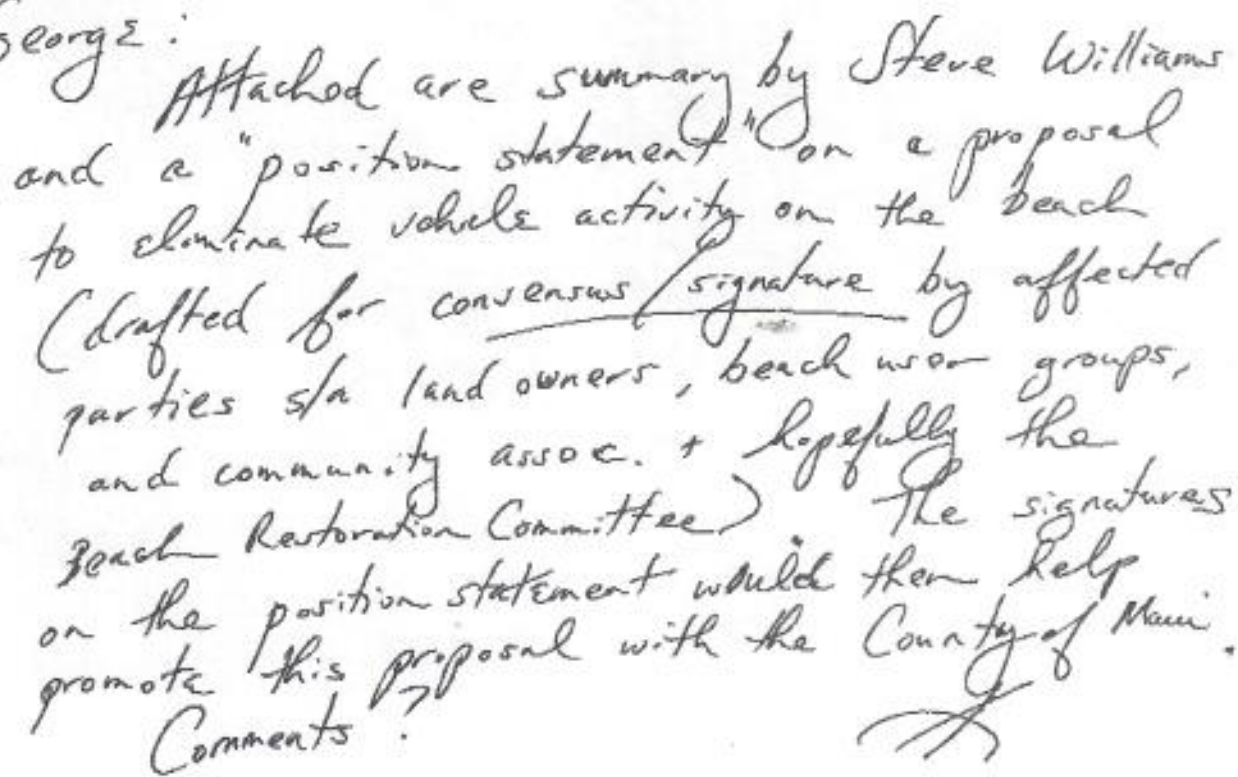 George:
Attached are summary by Steve Williams
and a "position statement" on a proposal
to eliminate vehicle activity on the beach
(drafted for consensus/signature by affected
parties s/a land owners, beach user groups,
and community assoc. + hopefully the
Beach Restoration Committee). The signatures
on the position statement would then help
promote this proposal with the County of Maui.
Comments?